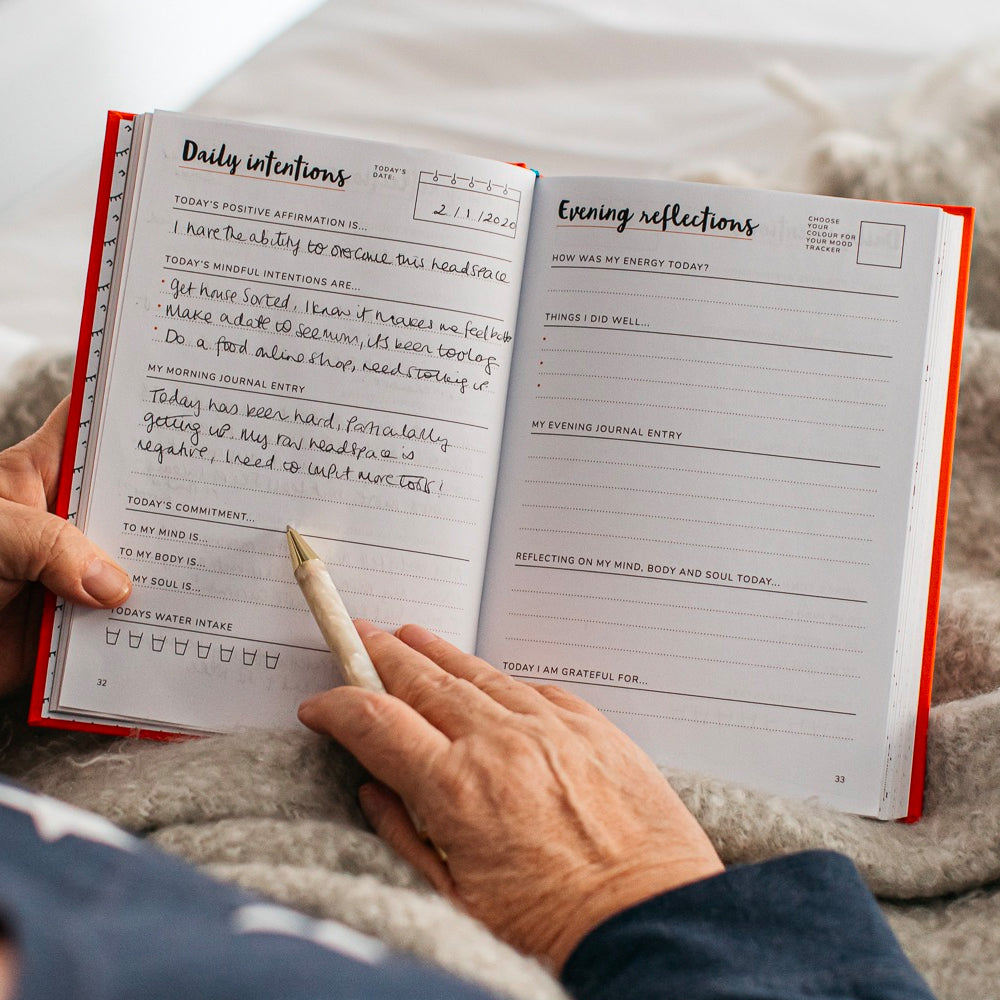 Daily intentions
TODAY'S
DATE:
2/1/2020
TODAY'S POSITIVE AFFIRMATION IS...
I have the ability to overcome this headspace
TODAY'S MINDFUL INTENTIONS ARE...
• get house sorted, I know it makes me feel better
• Make a date to see mum, it's been too long
• Do a food online shop, need stocking up
MY MORNING JOURNAL ENTRY
Today has been hard, particularly
getting up. My raw headspace is
negative, I need to input more tools!
TODAY'S COMMITMENT...
TO MY MIND IS...
TO MY BODY IS...
MY SOUL IS...
TODAYS WATER INTAKE
32
Evening reflections
CHOOSE
YOUR
COLOUR FOR
YOUR MOOD
TRACKER
HOW WAS MY ENERGY TODAY?
THINGS I DID WELL...
MY EVENING JOURNAL ENTRY
REFLECTING ON MY MIND, BODY AND SOUL TODAY...
TODAY I AM GRATEFUL FOR...
33